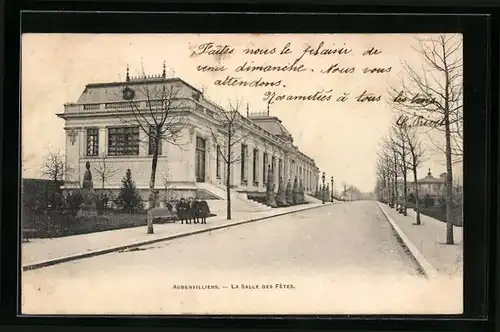 Faites nous le plaisir de
venir dimanche. Nous vous
attendons.
Nos amitiés à tous
AUBERVILLIERS. — LA SALLE DES FÊTES.